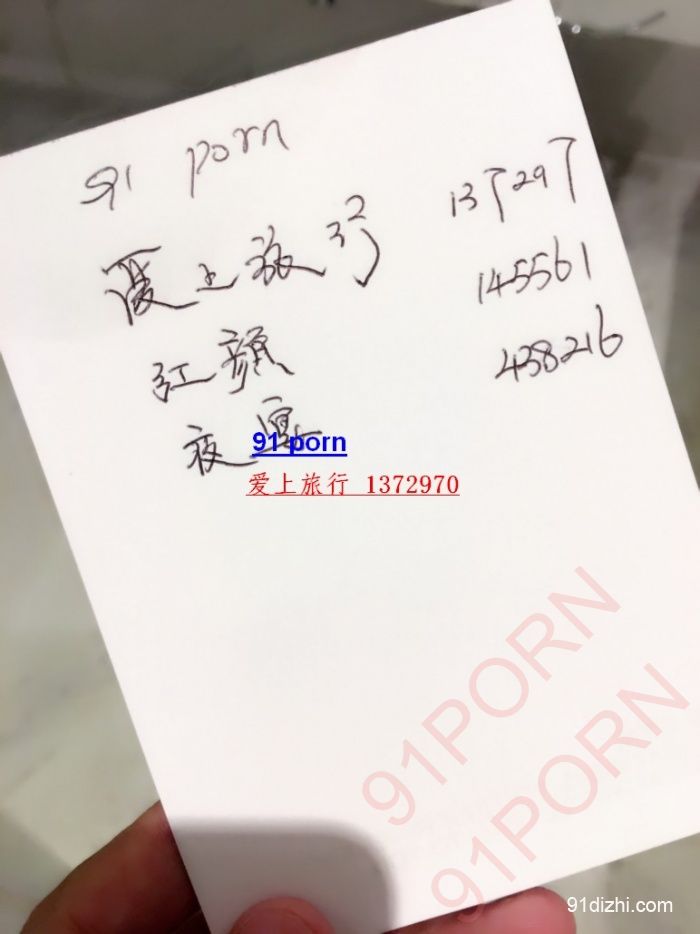 91 porn
爱上旅行 137297
红颜 145561
夜宴 438216
91 porn
爱上旅行 1372970
91PORN
91PORN
91dizhi.com